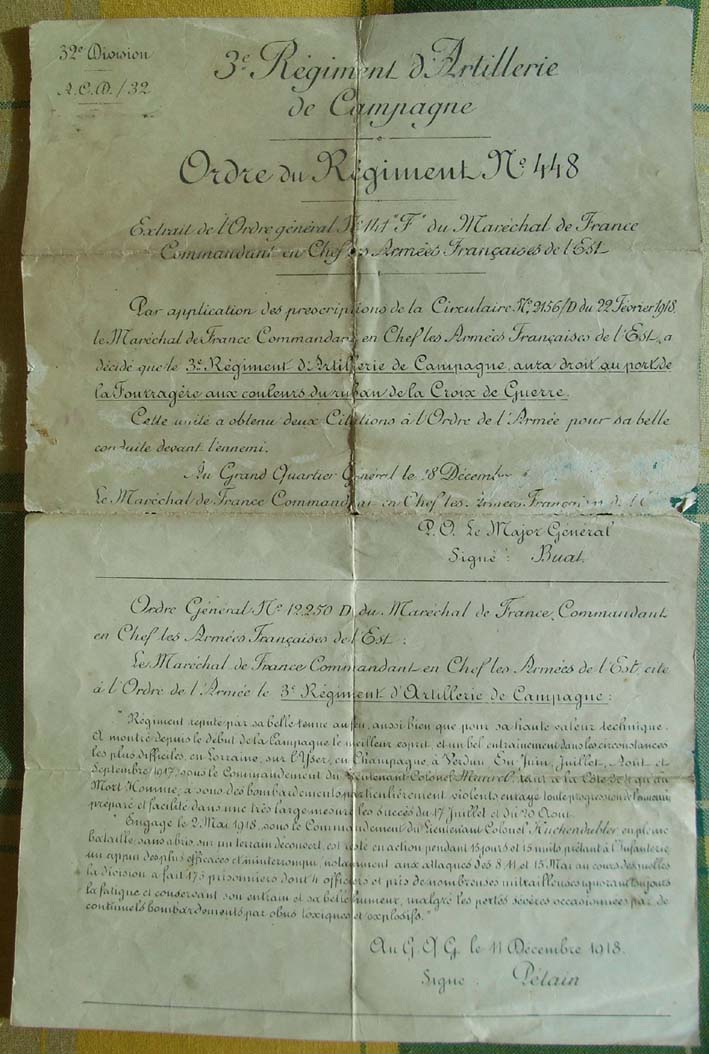 32e Division
A.C.D./32
3e Régiment d'Artillerie
de Campagne
Ordre du Régiment No 448
Extrait de l'Ordre général No 141 "F" du Maréchal de France
Commandant en Chef les Armées Françaises de l'Est
Par application des prescriptions de la Circulaire No 2156/D du 22 Février 1918,
le Maréchal de France Commandant en Chef les Armées Françaises de l'Est, a
décidé que le 3e Régiment d'Artillerie de Campagne, aura droit au port de
la Fourragère aux couleurs du ruban de la Croix de Guerre.
Cette unité a obtenu deux Citations à l'Ordre de l'Armée pour sa belle
conduite devant l'ennemi.
Au Grand Quartier Général le 18 Décembre
Le Maréchal de France Commandant en Chef les Armées Françaises de l'E
P.O. Le Major Général
Signé: Buat.
Ordre Général No 12.250 D, du Maréchal de France, Commandant
en Chef les Armées Françaises de l'Est:
Le Maréchal de France Commandant en Chef les Armées de l'Est cite
à l'Ordre de l'Armée le 3e Régiment d'Artillerie de Campagne:
"Régiment réputé par sa belle tenue au feu, aussi bien que pour sa haute valeur technique.
A montré depuis le début de la Campagne le meilleur esprit et un bel entrainement dans les circonstances
les plus difficiles, en Lorraine, sur l'Yser, en Champagne, à Verdun. En Juin, Juillet, Août et
Septembre 1917, sous le Commandement du Lieutenant Colonel Maurel, tant à la Cote 304 qu'au
Mort Homme, a sous des bombardements particulièrement violents enrayé toute progression de l'ennemi,
préparé et facilité dans une très large mesure les succès du 17 Juillet et du 20 Août.
"Engagé le 2 Mai 1918, sous le Commandement du Lieutenant Colonel Kuchenbubler en pleine
bataille sans abris, sur un terrain découvert, est resté en action pendant 15 jours et 15 nuits prêtant à l'Infanterie
un appui des plus efficaces et ininterrompu, notamment aux attaques des 8, 11 et 15 Mai au cours desquelles
la division a fait 175 prisonniers dont 4 officiers et pris de nombreuses mitrailleuses ignorant toujours
la fatigue et conservant son entrain et sa belle humeur, malgré les pertes sévères occasionnées par de
continuels bombardements par obus toxiques et explosifs."
Au G.Q.G. le 11 Décembre 1918.
Signé: Pétain